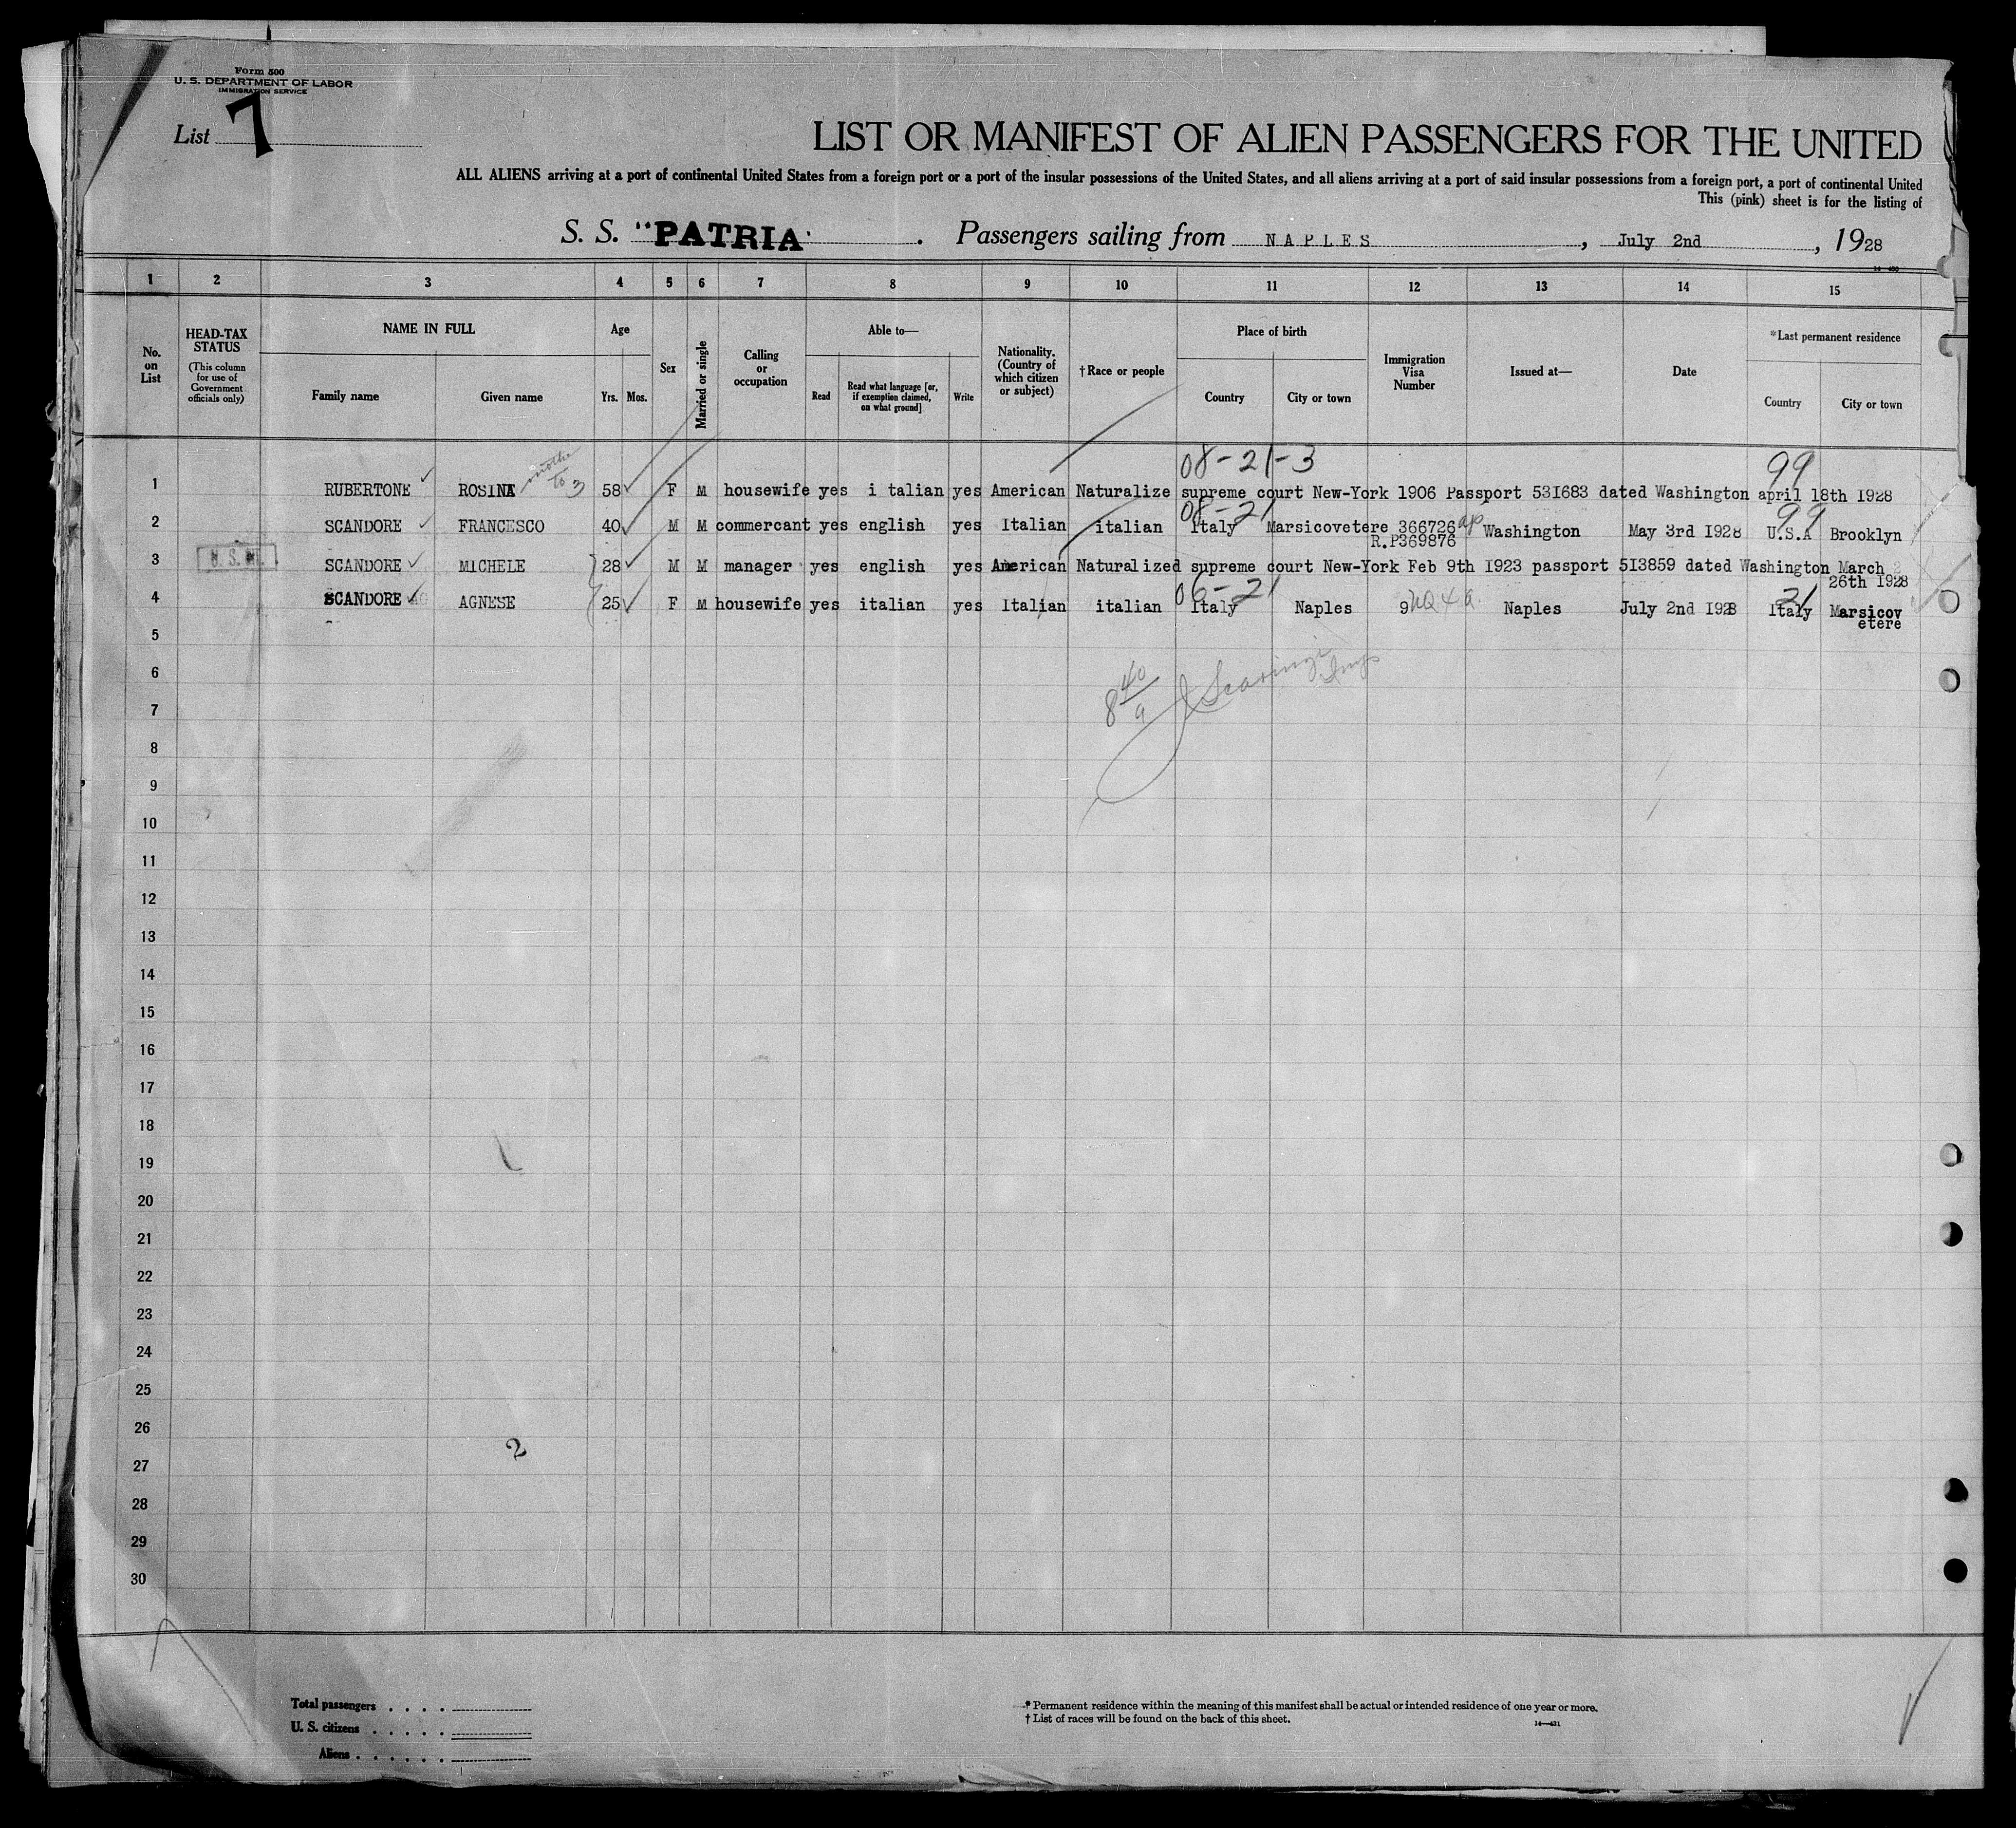 Form 500
U. S. DEPARTMENT OF LABOR
IMMIGRATION SERVICE
List 7
LIST OR MANIFEST OF ALIEN PASSENGERS FOR THE UNITED
ALL ALIENS arriving at a port of continental United States from a foreign port or a port of the insular possessions of the United States, and all aliens arriving at a port of said insular possessions from a foreign port, a port of continental United
This (pink) sheet is for the listing of
S. S. "PATRIA" . Passengers sailing from NAPLES , July 2nd , 1928
1 2 3 4 5 6 7 8 9 10 11 12 13 14 15
No. on List
HEAD-TAX STATUS
(This column for use of Government officials only)
NAME IN FULL
Family name Given name
Age
Yrs. Mos.
Sex
Married or single
Calling or occupation
Able to—
Read
Read what language [or, if exemption claimed, on what ground]
Write
Nationality. (Country of which citizen or subject)
†Race or people
Place of birth
Country City or town
Immigration Visa Number
Issued at—
Date
*Last permanent residence
Country City or town
08-21-3 99
1 RUBERTONE ROSINA mother to 3 58 F M housewife yes i talian yes American Naturalize supreme court New-York 1906 Passport 531683 dated Washington april 18th 1928
08-21 99
2 SCANDORE FRANCESCO 40 M M commercant yes english yes Italian italian Italy Marsicovetere 366726 Washington May 3rd 1928 U.S.A Brooklyn
R.P369876
3 SCANDORE MICHELE 28 M M manager yes english yes American Naturalized supreme court New-York Feb 9th 1923 passport 513859 dated Washington March
26th 1928
06-21 21
4 SCANDORE AGNESE 25 F M housewife yes italian yes Italian italian Italy Naples 9 NQ 4 a Naples July 2nd 1928 Italy Marsicov
etere
5
6
8 40/9
7
8
9
10
11
12
13
14
15
16
17
18
19
20
21
22
23
24
25
26
2
27
28
29
30
Total passengers . . . .
U. S. citizens . . . . .
Aliens . . . . . .
* Permanent residence within the meaning of this manifest shall be actual or intended residence of one year or more.
† List of races will be found on the back of this sheet.
14—421